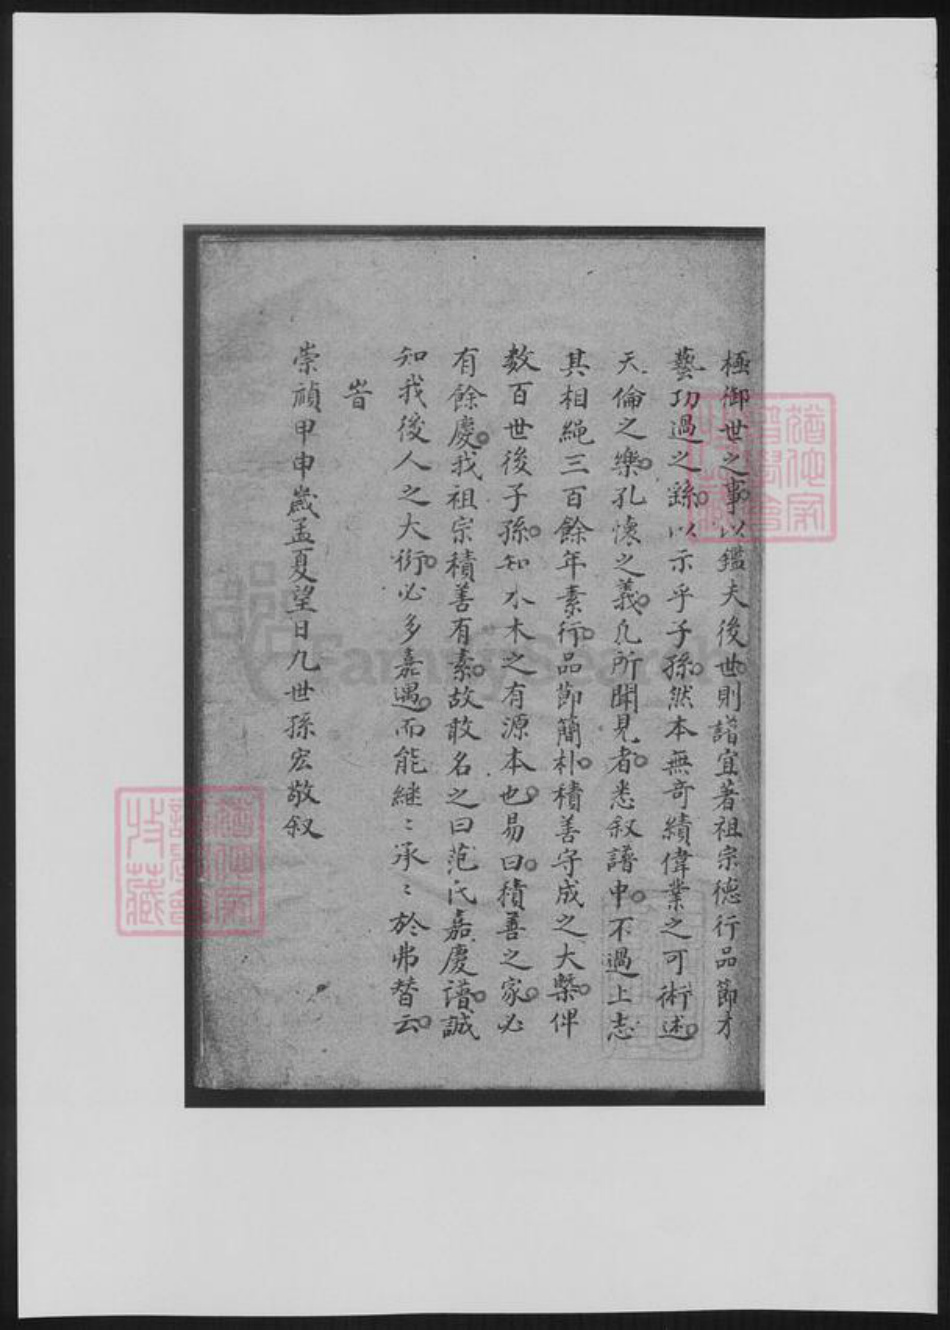 極御世之事以鑑夫後世則譜宜著祖宗德行品節才
藝功過之繇以示乎子孫然本無奇績偉業之可術述
天倫之樂孔懷之義凡所聞見者悉叙譜中不過上志
其相繩三百餘年素行品節簡朴積善守成之大槩俾
数百世後子孫知水木之有源本也易曰積善之家必
有餘慶我祖宗積善有素故敢名之曰范氏嘉慶譜誠
知我後人之大衍必多嘉遇而能継〻承〻於弗替云
旹
崇禎甲申歲孟夏望日九世孫宏敬叙
FamilySearch